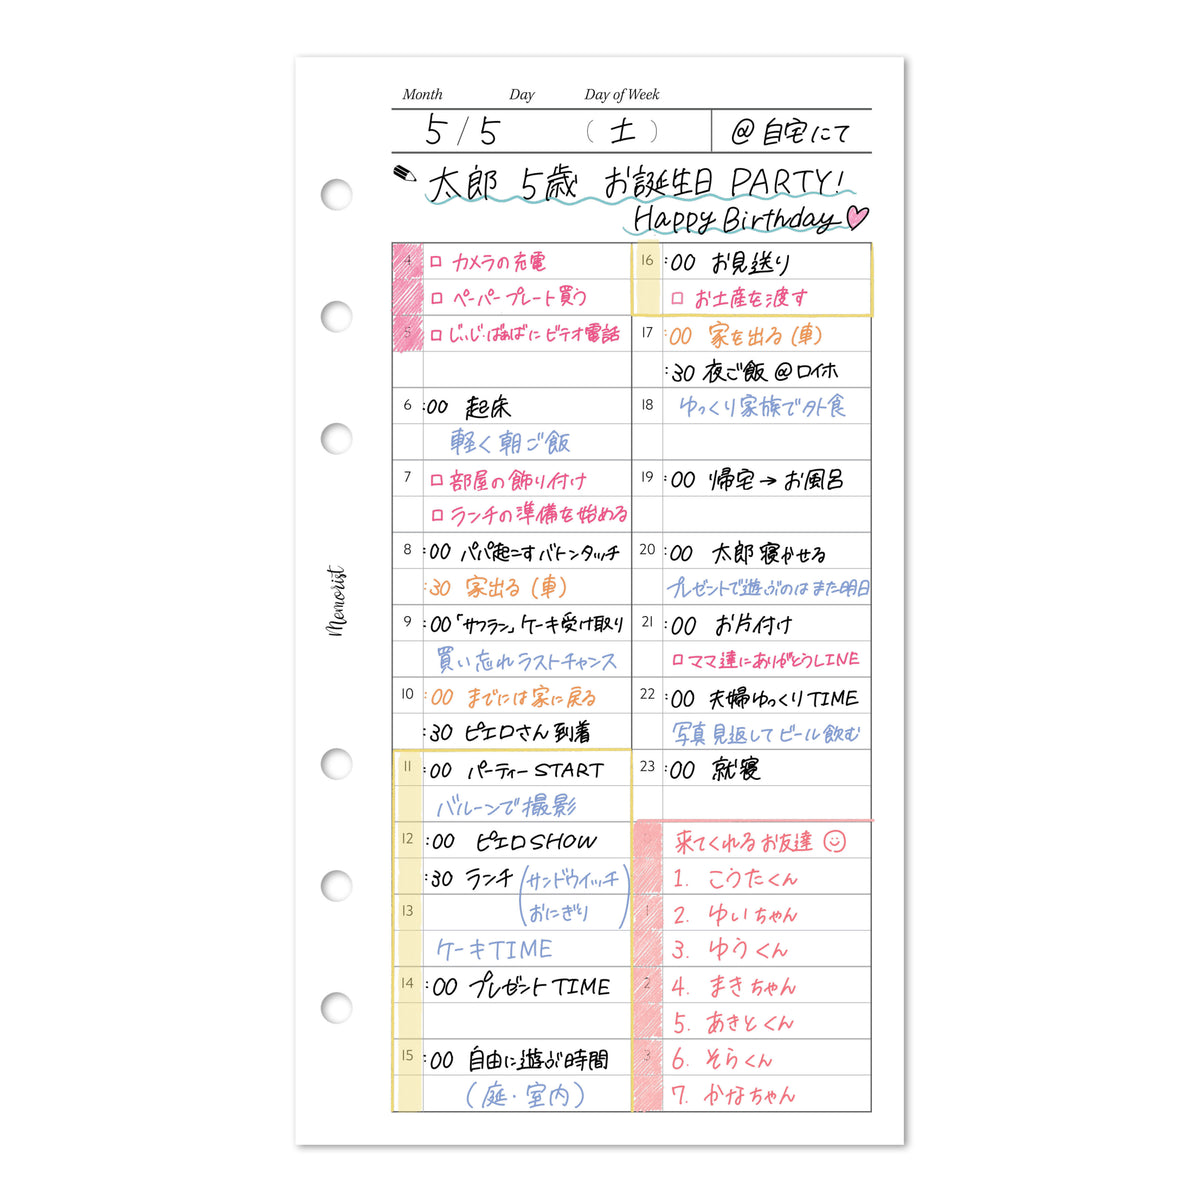 Month Day Day of Week
5/5 (土) @自宅にて
太郎 5歳 お誕生日 PARTY!
Happy Birthday
4 □ カメラの充電
□ ペーパープレート買う
5 □ じぃじ・ばぁばにビデオ電話
6 :00 起床
軽く朝ご飯
7 □ 部屋の飾り付け
□ ランチの準備を始める
8 :00 パパ起こすバトンタッチ
:30 家出る(車)
9 :00「サフラン」ケーキ受け取り
買い忘れラストチャンス
10 :00 までには家に戻る
:30 ピエロさん到着
11 :00 パーティーSTART
バルーンで撮影
12 :00 ピエロSHOW
:30 ランチ(サンドウィッチ
13 おにぎり)
ケーキTIME
14 :00 プレゼントTIME
15 :00 自由に遊ぶ時間
(庭・室内)
16 :00 お見送り
□ お土産を渡す
17 :00 家を出る(車)
:30 夜ご飯@ロイホ
18 ゆっくり家族で外食
19 :00 帰宅→お風呂
20 :00 太郎寝かせる
プレゼントで遊ぶのはまた明日
21 :00 お片付け
□ ママ達にありがとうLINE
22 :00 夫婦ゆっくりTIME
写真見返してビール飲む
23 :00 就寝
0 来てくれるお友達
1. こうたくん
1 2. ゆいちゃん
3. ゆうくん
2 4. まきちゃん
5. あきとくん
3 6. そらくん
7. かなちゃん
Memorist